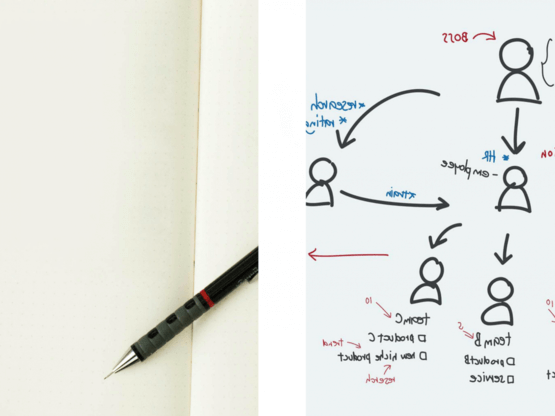 BOSS
*research
* rating
* HR
- employee
*train
10
team C
product C
trend
new niche product
5
team B
product B
service
10